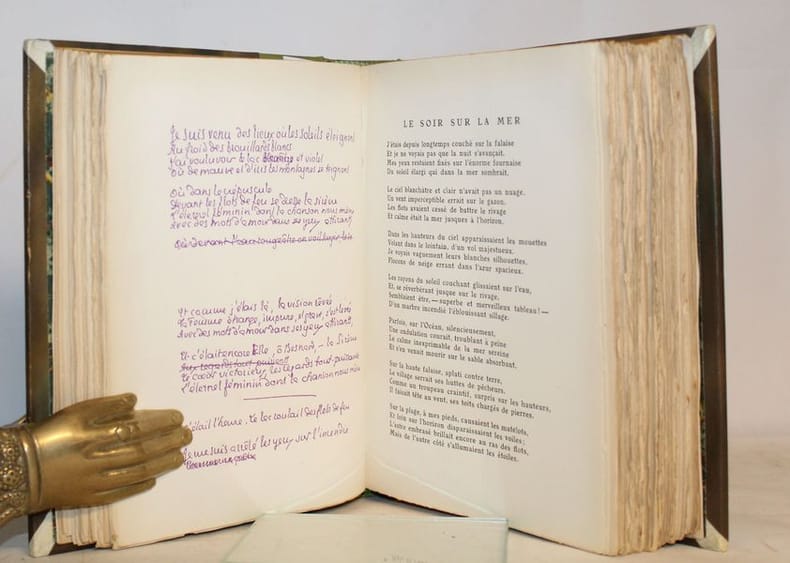 Je suis venu des lieux où les soleils éloignent
Au froid des brouillards blancs
J'ai voulu voir le lac et violet
Où de mauve et d'iris les montagnes se
Où dans le crépuscule
Devant les flots de feu se dresse la sirène
L'éternel féminin dont la chanson nous mène
Avec des mots d'amour dans ses yeux attirant,
Où devant
Et comme j'étais là, la vision rêvée
La Femme étrange, impure, et pure, s'est levée
Avec des mots d'amour dans ses yeux attirant,
Et c'était encore Elle, ô Besnard, – la Sirène
Aux regards tout-puissants
Le cœur victorieux, les regards tout-puissants
L'éternel féminin dont la chanson nous mène
C'était l'heure. Le lac roulait des flots de feu
Je me suis arrêté les yeux sur l'incendie
LE SOIR SUR LA MER
J'étais depuis longtemps couché sur la falaise
Et je ne voyais pas que la nuit s'avançait.
Mes yeux restaient fixés sur l'énorme fournaise
Du soleil élargi qui dans la mer sombrait.
Le ciel blanchâtre et clair n'avait pas un nuage.
Un vent imperceptible errait sur le gazon.
Les flots avaient cessé de battre le rivage
Et calme était la mer jusques à l'horizon.
Dans les hauteurs du ciel apparaissaient les mouettes
Volant dans le lointain, d'un vol majestueux.
Je voyais vaguement leurs blanches silhouettes,
Flocons de neige errant dans l'azur spacieux.
Les rayons du soleil couchant glissaient sur l'eau,
Et, se réverbérant jusque sur le rivage,
Semblaient être, — superbe et merveilleux tableau! —
D'un marbre incendié l'éblouissant sillage.
Parfois, sur l'Océan, silencieusement,
Une ondulation courait, troublant à peine
Le calme inexprimable de la mer sereine
Et s'en venait mourir sur le sable absorbant.
Sur la haute falaise, aplati contre terre,
Le village serrait ses huttes de pêcheurs,
Comme un troupeau craintif, surpris sur les hauteurs,
Il faisait tête au vent, ses toits chargés de pierres.
Sur la plage, à mes pieds, causaient les matelots,
Et loin sur l'horizon disparaissaient les voiles;
L'astre embrasé brillait encore au ras des flots,
Mais de l'autre côté s'allumaient les étoiles.